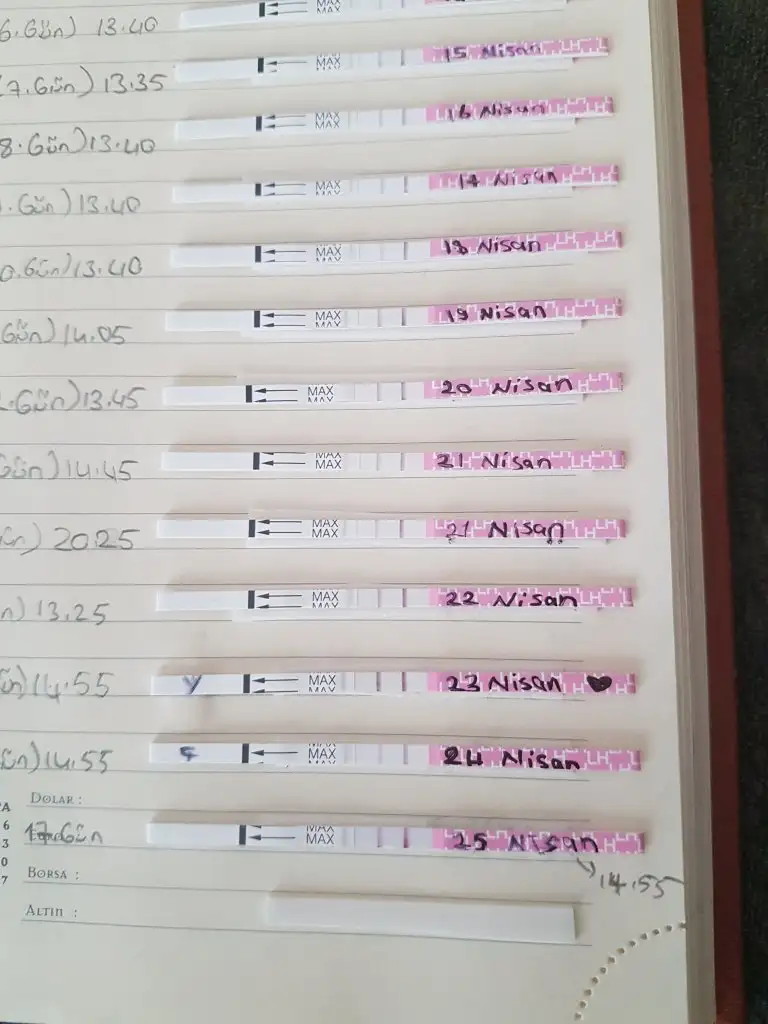 6.Gün) 13.40
MAX
15 Nisan LH
(7.Gün) 13.35
MAX
16 Nisan
8.Gün) 13.40
MAX
MAX
17 Nisan
.Gün) 13.40
MAX
18 Nisan LH LH
0.Gün) 13.40
MAX
19 Nisan
Gün) 14.05
MAX
20 Nisan
.Gün) 13.45
MAX
21 Nisan LH
Gün) 14.45
MAX
21 Nisan LH
ün) 20.25
MAX
MAX
22 Nisan
n) 13.25
MAX
23 Nisan ♥
ün) 14.55
MAX
24 Nisan LH
Gün) 14.55
MAX
DOLAR :
17.Gün
MAX
25 Nisan
14.55
BORSA :
ALTIN :